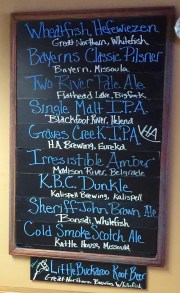 Wheatfish, Hefeweizen
Great Northern, Whitefish
Bayern's Classic Pilsner
Bayern, Missoula
Two River Pale Ale
Flathead Lake, Bigfork
Single Malt I.P.A.
Blackfoot River, Helena
Graves Creek I.P.A.
HA
HA Brewing, Eureka
Irresistible Amber
Madison River, Belgrade
K.B.C. Dunkle
Kalispell Brewing, Kalispell
Sheriff John Brown Ale
Bonsai, Whitefish
Cold Smoke Scotch Ale
Kettle House, Missoula
Little Buckaroo Root Beer
Great Northern Brewing Whitefish